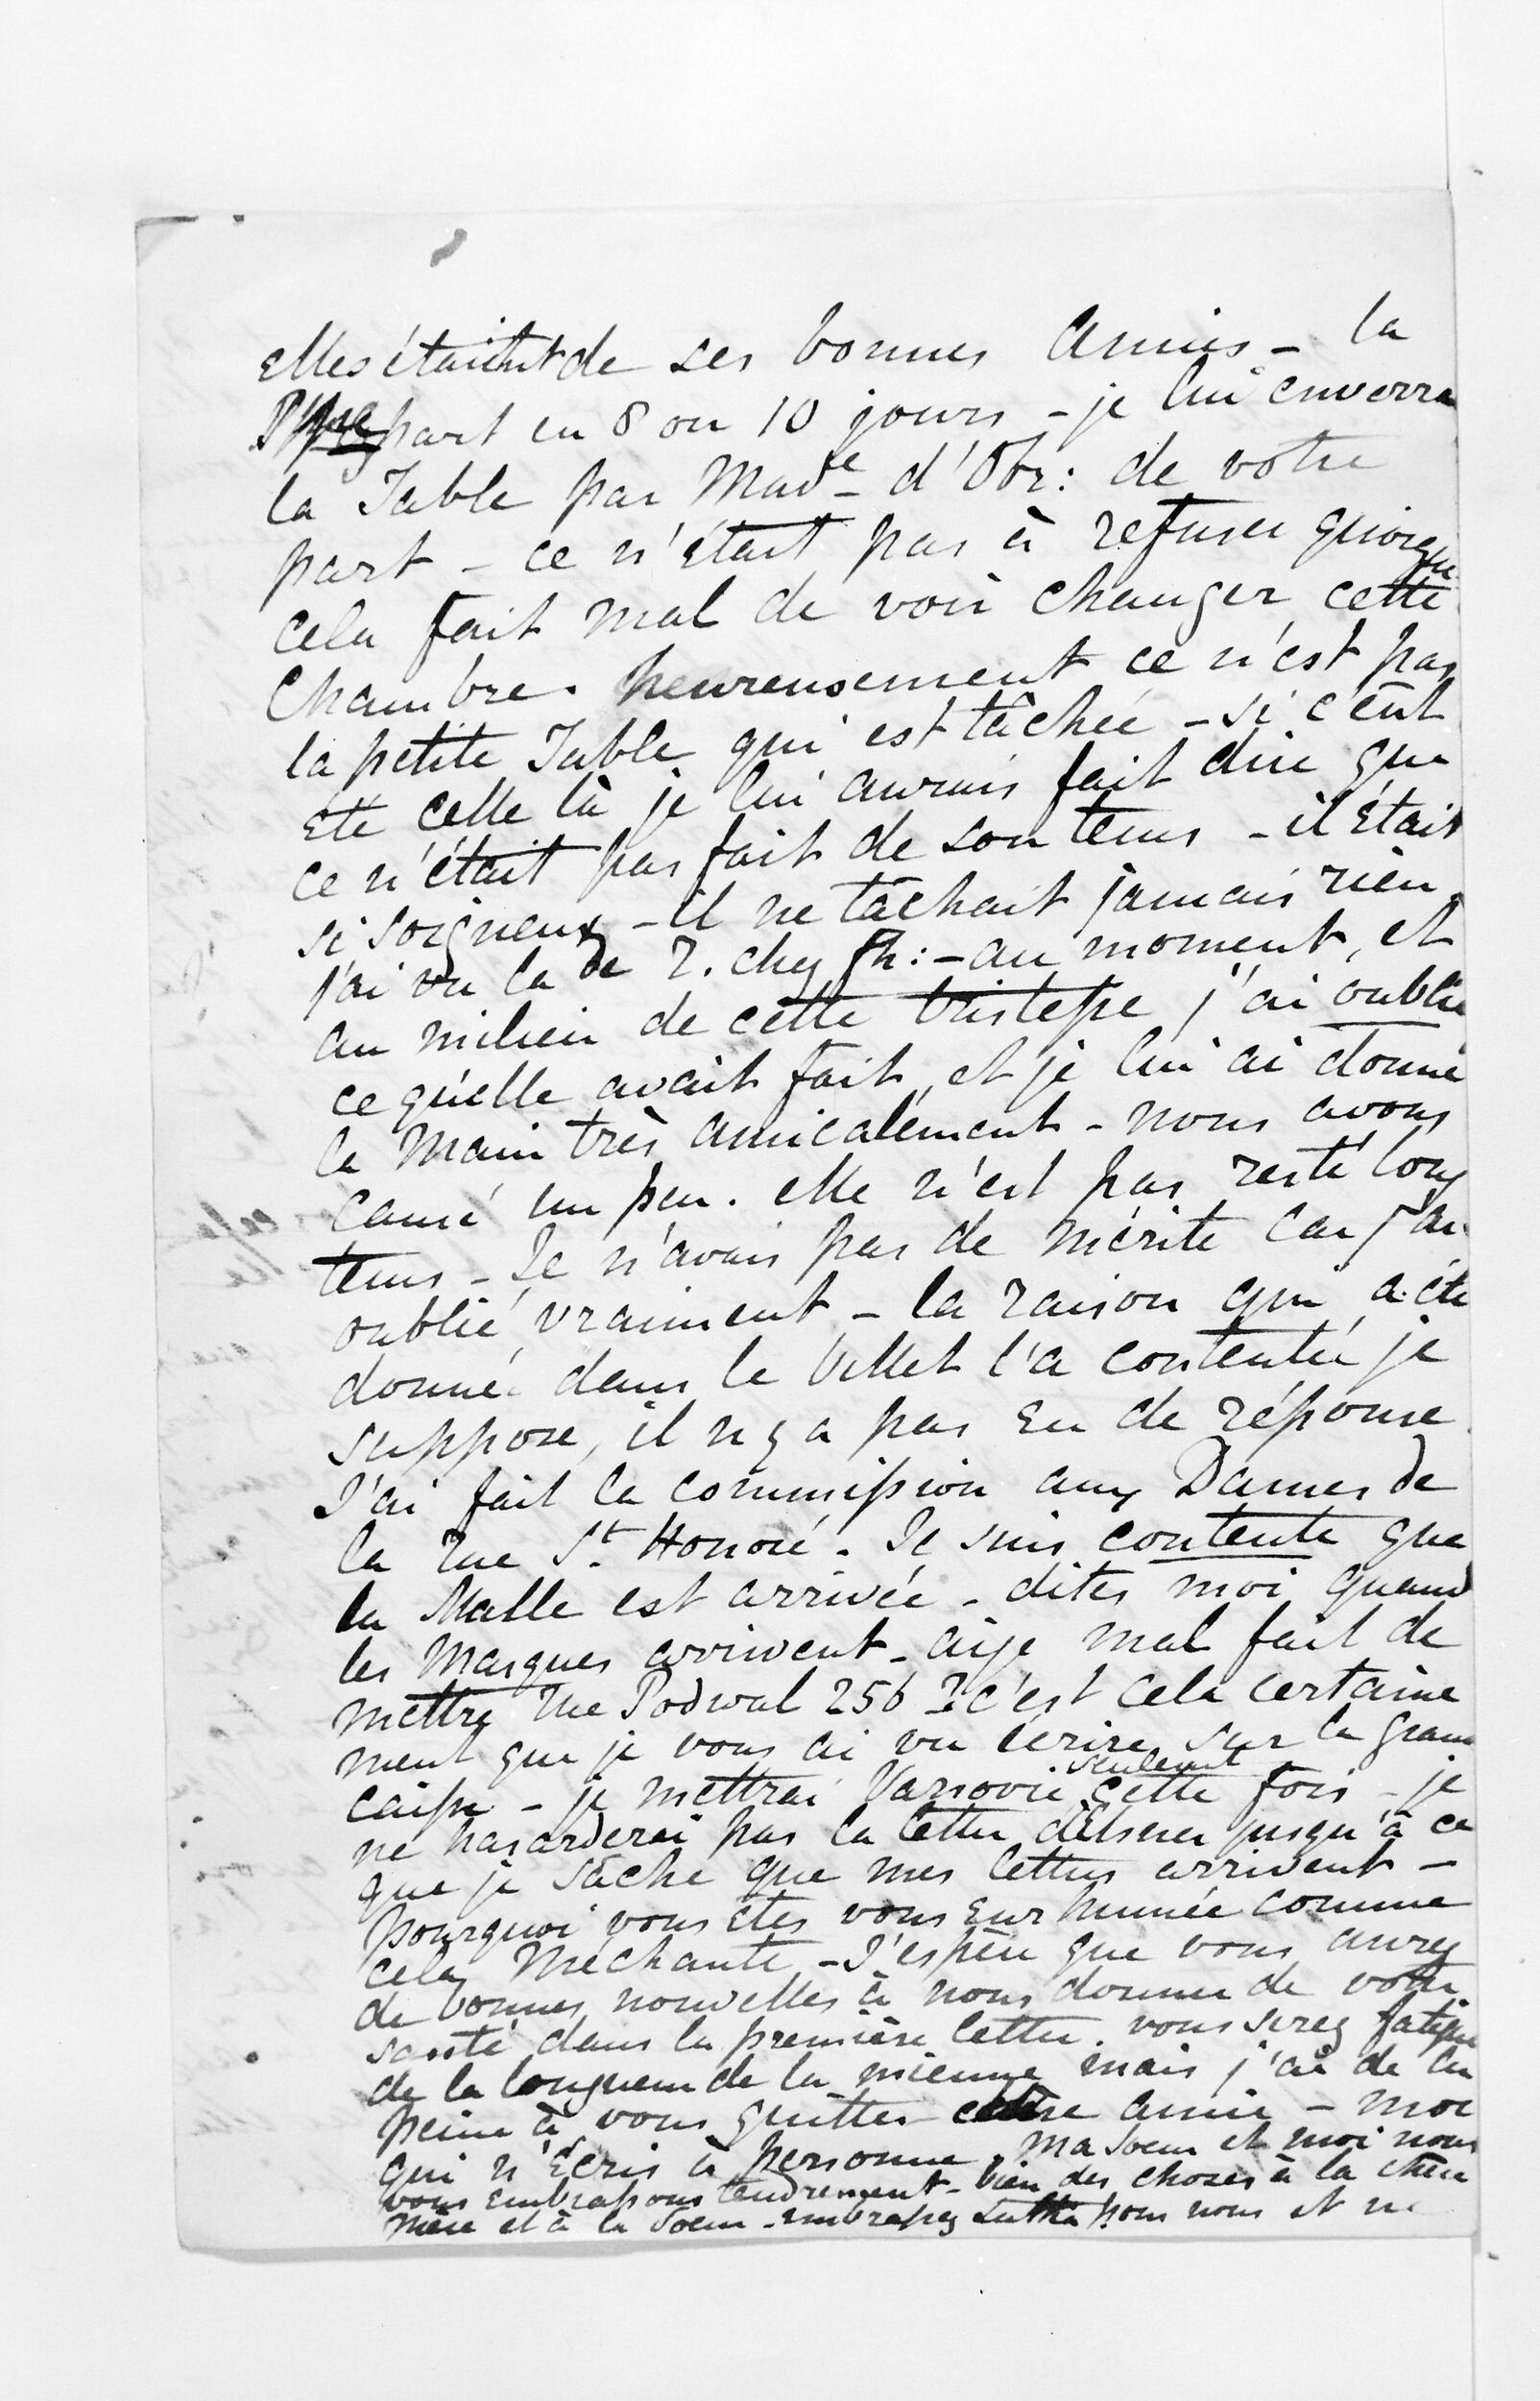 elles étaient de ses bonnes Amies - la
part en 8 ou 10 jours - je lui enverra
la Table par Mad^e d'Obr: de votre
part - ce n'était pas à refuser quoique
cela fait mal de voir changer cette
Chambre. heureusement ce n'est pas
la petite Table qui est tâchée - si c'eût
été celle là je lui aurais fait dire que
ce n'était pas fait de son tems - il était
si soigneux - il ne tâchait jamais rien.
j'ai vu la de R. chez : - au moment, et
au milieu de cette tristesse j'ai oublié
ce qu'elle avait fait, et je lui ai donné
la Main très amicalement - nous avons
causé un peu. elle n'est pas resté long
tems - Je n'avais pas de mérite car j'ai
oublié vraiment - la raison qui a été
donné dans le billet l'a contentée je
suppose, il n y a pas eu de réponse.
J'ai fait la commission aux Dames de
la rue S^t Honoré. Je suis contente que
la Malle est arrivée - dites moi quand
les Masques arrivent - aije mal fait de
mettre rue Podwal 256 ? c'est cela certaine
ment que je vous ai vu écrire sur la grand
caisse - je mettrai Varsovie seulement cette fois - je
ne hasarderai pas la lettre d'Elsner jusqu'à ce
que je sâche que mes lettres arrivent -
pourquoi vous êtes vous enrhumée comme
cela Méchante - J'espère que vous aurez
de bonnes nouvelles à nous donner de votre
santé dans la première lettre. vous serez fatiguée
de la longueur de la mienne mais j'ai de la
peine à vous quitter chère amie - moi
qui n'écris à personne. Ma soeur et moi nous
vous embrassons tendrement - bien des choses à la chère
Mère et à la soeur - embrassez pour nous et